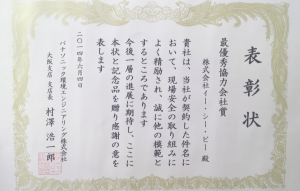 表彰状
最優秀協力会社賞
株式会社イー・シー・ビー 殿
貴社は、当社が契約した件名に
おいて、現場安全の取り組みに
よく精励され、誠に他の模範と
するところであります
今後一層の進展に期待し、ここに
本状と記念品を贈り感謝の意を
表します
二〇一四年六月四日
パナソニック環境エンジニアリング株式会社
大阪支店 支店長 村澤浩一郎